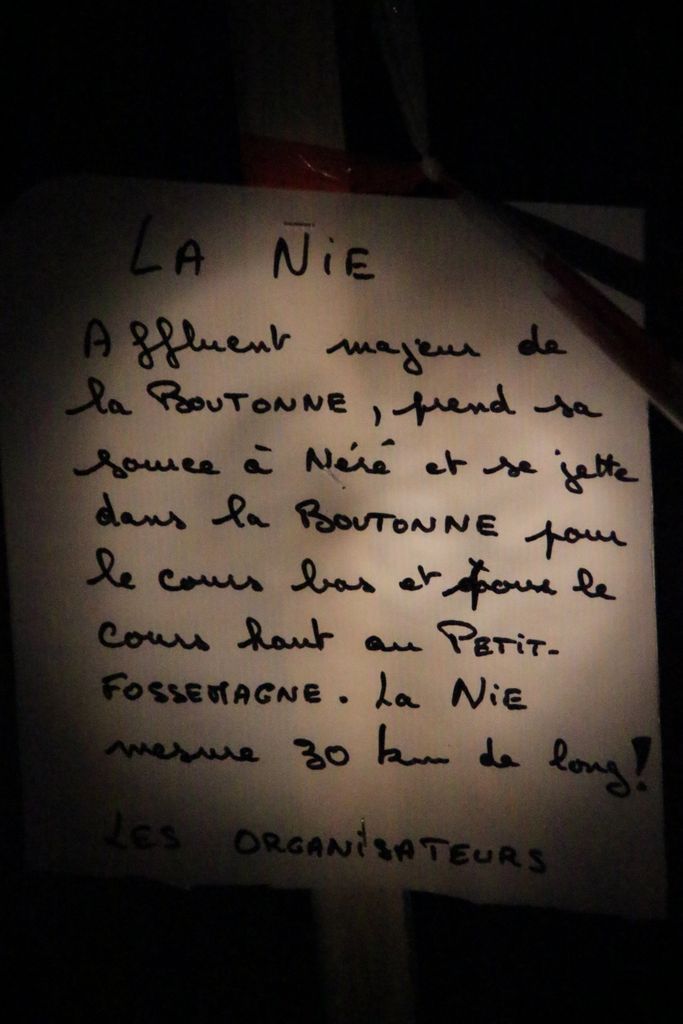 LA NiE
Affluent majeur de
la BOUTONNE, prend sa
source à Néré et se jette
dans la BOUTONNE pour
le cours bas et pour le
cours haut au PETiT-
FOSSEMAGNE. La NiE
mesure 30 km de long!
LES ORGANiSATEURS